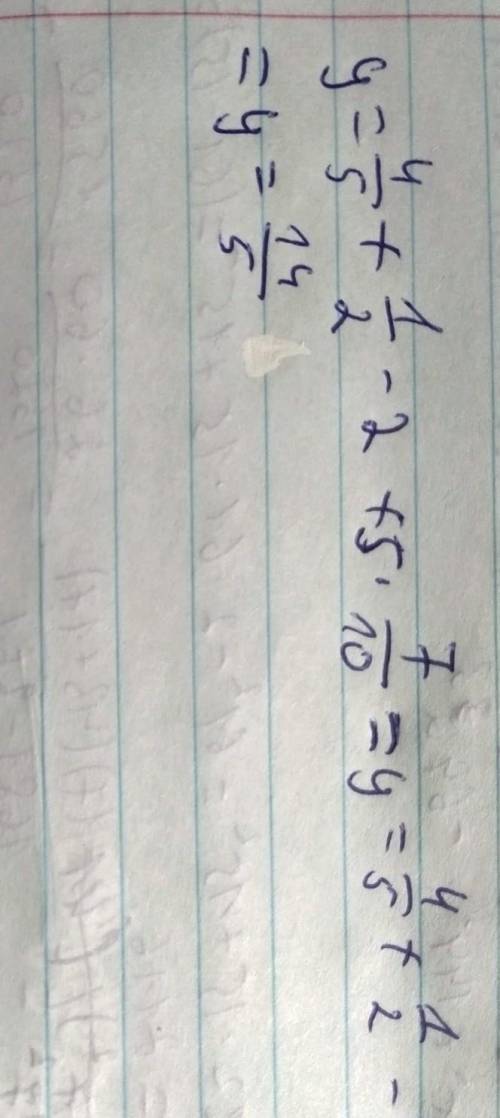 y = 4/5 + 1/2 - 2 + 5 · 7/10 = y = 4/5 + 1/2 -
= y = 14/5